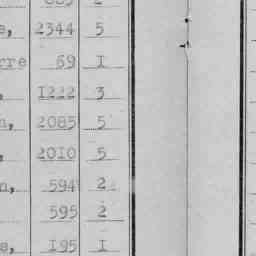 s, 2344 5
rre 69 I
, I222 3
n, 2085 5
, 20I0 5
n, 594 2
595 2
s, I95 I